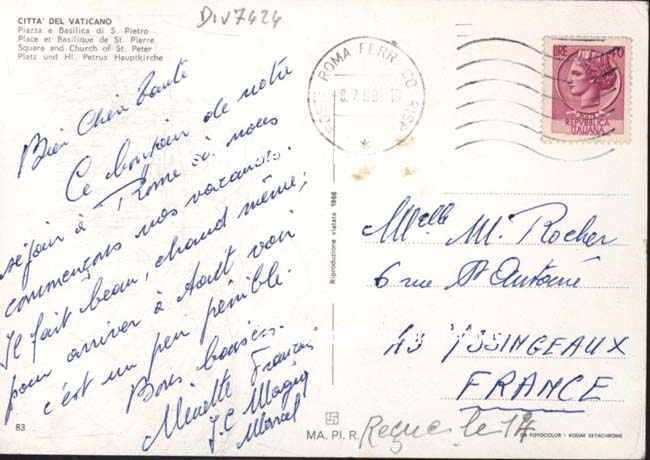 CITTA' DEL VATICANO
Piazza e Basilica di S. Pietro
Place et Basilique de St. Pierre
Square and Church of St. Peter
Platz und Hl. Petrus Hauptkirche
DIV7424
Bien Chère Tante
Ce bonjour de notre
séjour à Rome où nous
commençons nos vacances.
Il fait beau, chaud même;
pour arriver à tout voir
c'est un peu pénible.
Bons baisers.
Minette Francis
J.C Magui
Marcel
83
POSTE ROMA FERR
LIRE 70
REPVBBLICA
ITALIANA
Riproduzione vietata 1966
Melle M. Rocher
6 rue St Antoine
43 YSSINGEAUX
FRANCE
MA. PI. R.
Reçue le 14
FOTOCOLOR KODAK EKTACHROME